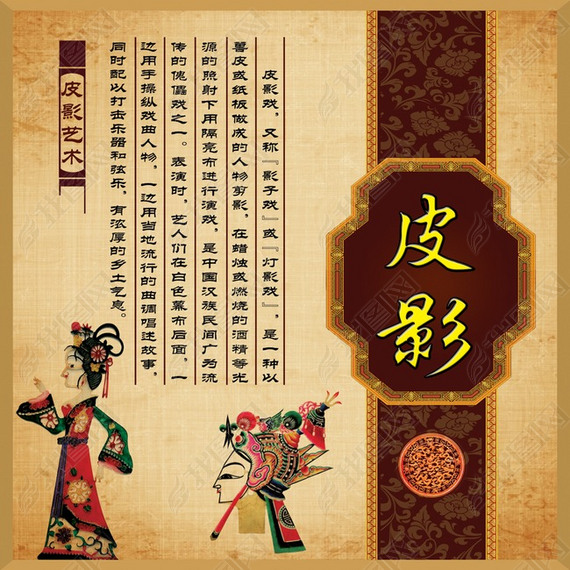 皮影
皮影戏，又称『影子戏』或『灯影戏』，是一种以
兽皮或纸板做成的人物剪影，在蜡烛或燃烧的酒精等光
源的照射下用隔亮布进行演戏，是中国汉族民间广为流
传的傀儡戏之一。表演时，艺人们在白色幕布后面，一
边用手操纵戏曲人物，一边用当地流行的曲调唱述故事，
同时配以打击乐器和弦乐，有浓厚的乡土气息。
皮影艺术